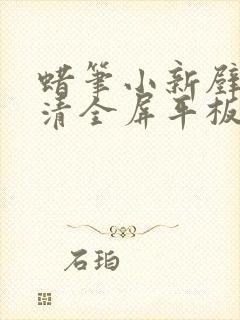 蜡笔小新壁
清全屏平板
石珀